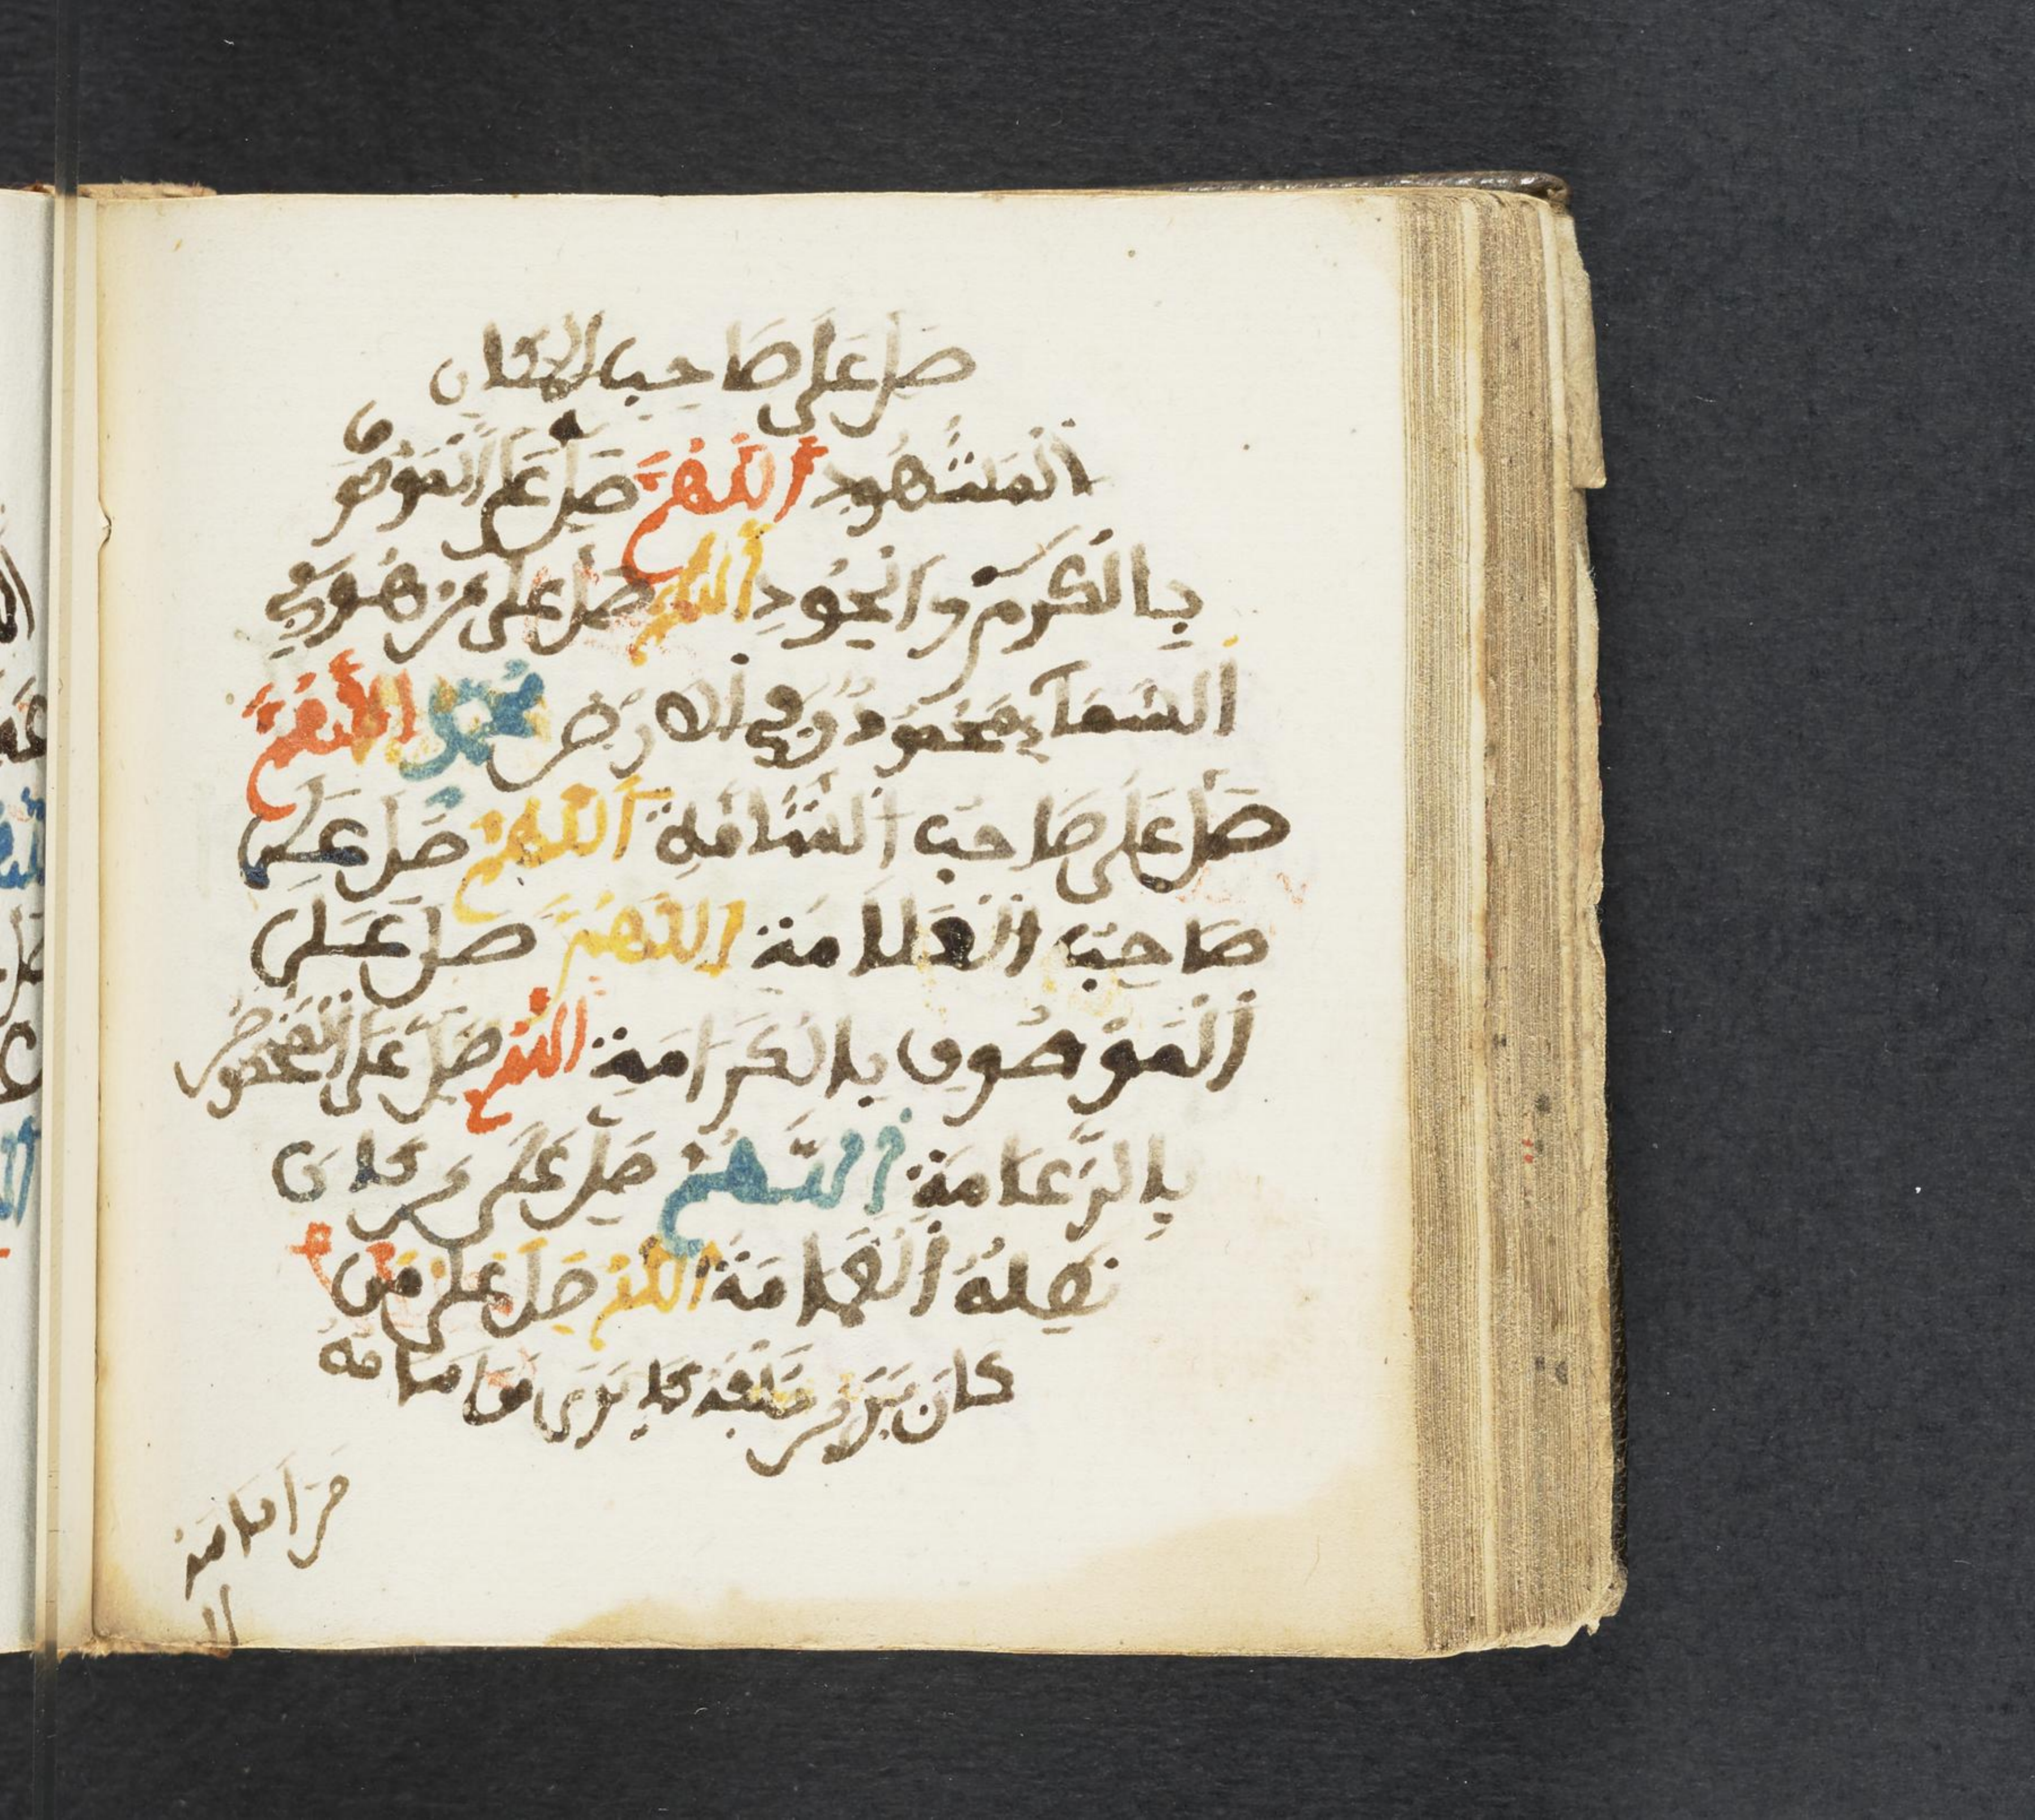 صَلِّ عَلَى صَاحِبِ الْمَكَانِ
الْمَشْهُودِ اللَّهُمَّ صَلِّ عَلَى الْمَوْصُوفِ
بِالْكَرَمِ وَالْجُودِ اللَّهُمَّ صَلِّ عَلَى مَنْ هُوَ فِي
السَّمَاءِ مَحْمُودٌ وَفِي الْأَرْضِ مُحَمَّدٌ اللَّهُمَّ
صَلِّ عَلَى صَاحِبِ الشَّامَةِ اللَّهُمَّ صَلِّ عَلَى
صَاحِبِ الْعَلَامَةِ اللَّهُمَّ صَلِّ عَلَى
الْمَوْصُوفِ بِالْكَرَامَةِ اللَّهُمَّ صَلِّ عَلَى الْمَخْصُوصِ
بِالزَّعَامَةِ اللَّهُمَّ صَلِّ عَلَى مَنْ كَانَ
تُظِلُّهُ الْغَمَامَةُ اللَّهُمَّ صَلِّ عَلَى مَنْ
كَانَ يَرَى مَنْ خَلْفَهُ كَمَا يَرَى مَنْ أَمَامَهُ